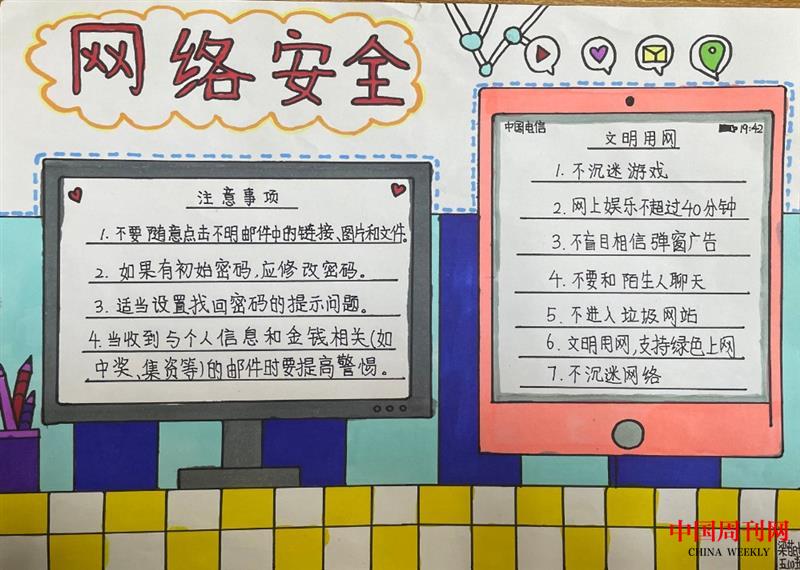 网络安全
注意事项
1.不要随意点击不明邮件中的链接、图片和文件。
2.如果有初始密码,应修改密码。
3.适当设置找回密码的提示问题。
4.当收到与个人信息和金钱相关(如
中奖、集资等)的邮件时要提高警惕。
中国电信
19:42
文明用网
1.不沉迷游戏
2.网上娱乐不超过40分钟
3.不盲目相信弹窗广告
4.不要和陌生人聊天
5.不进入垃圾网站
6.文明用网,支持绿色上网
7.不沉迷网络
中国周刊网
CHINA WEEKLY